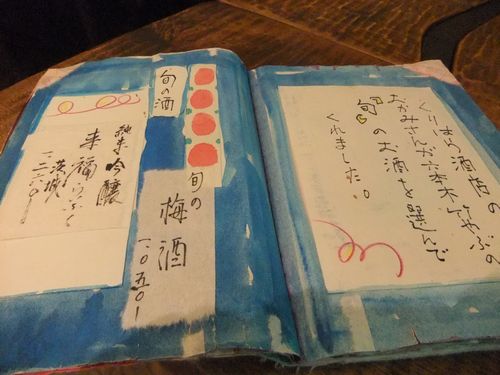 くりはら酒店の
おかみさんが六本木んやぶの
旬のお酒を選んで
くれました。
旬の酒
旬の
梅酒
一〇五〇一
純米吟醸
来福らいふく
茨城